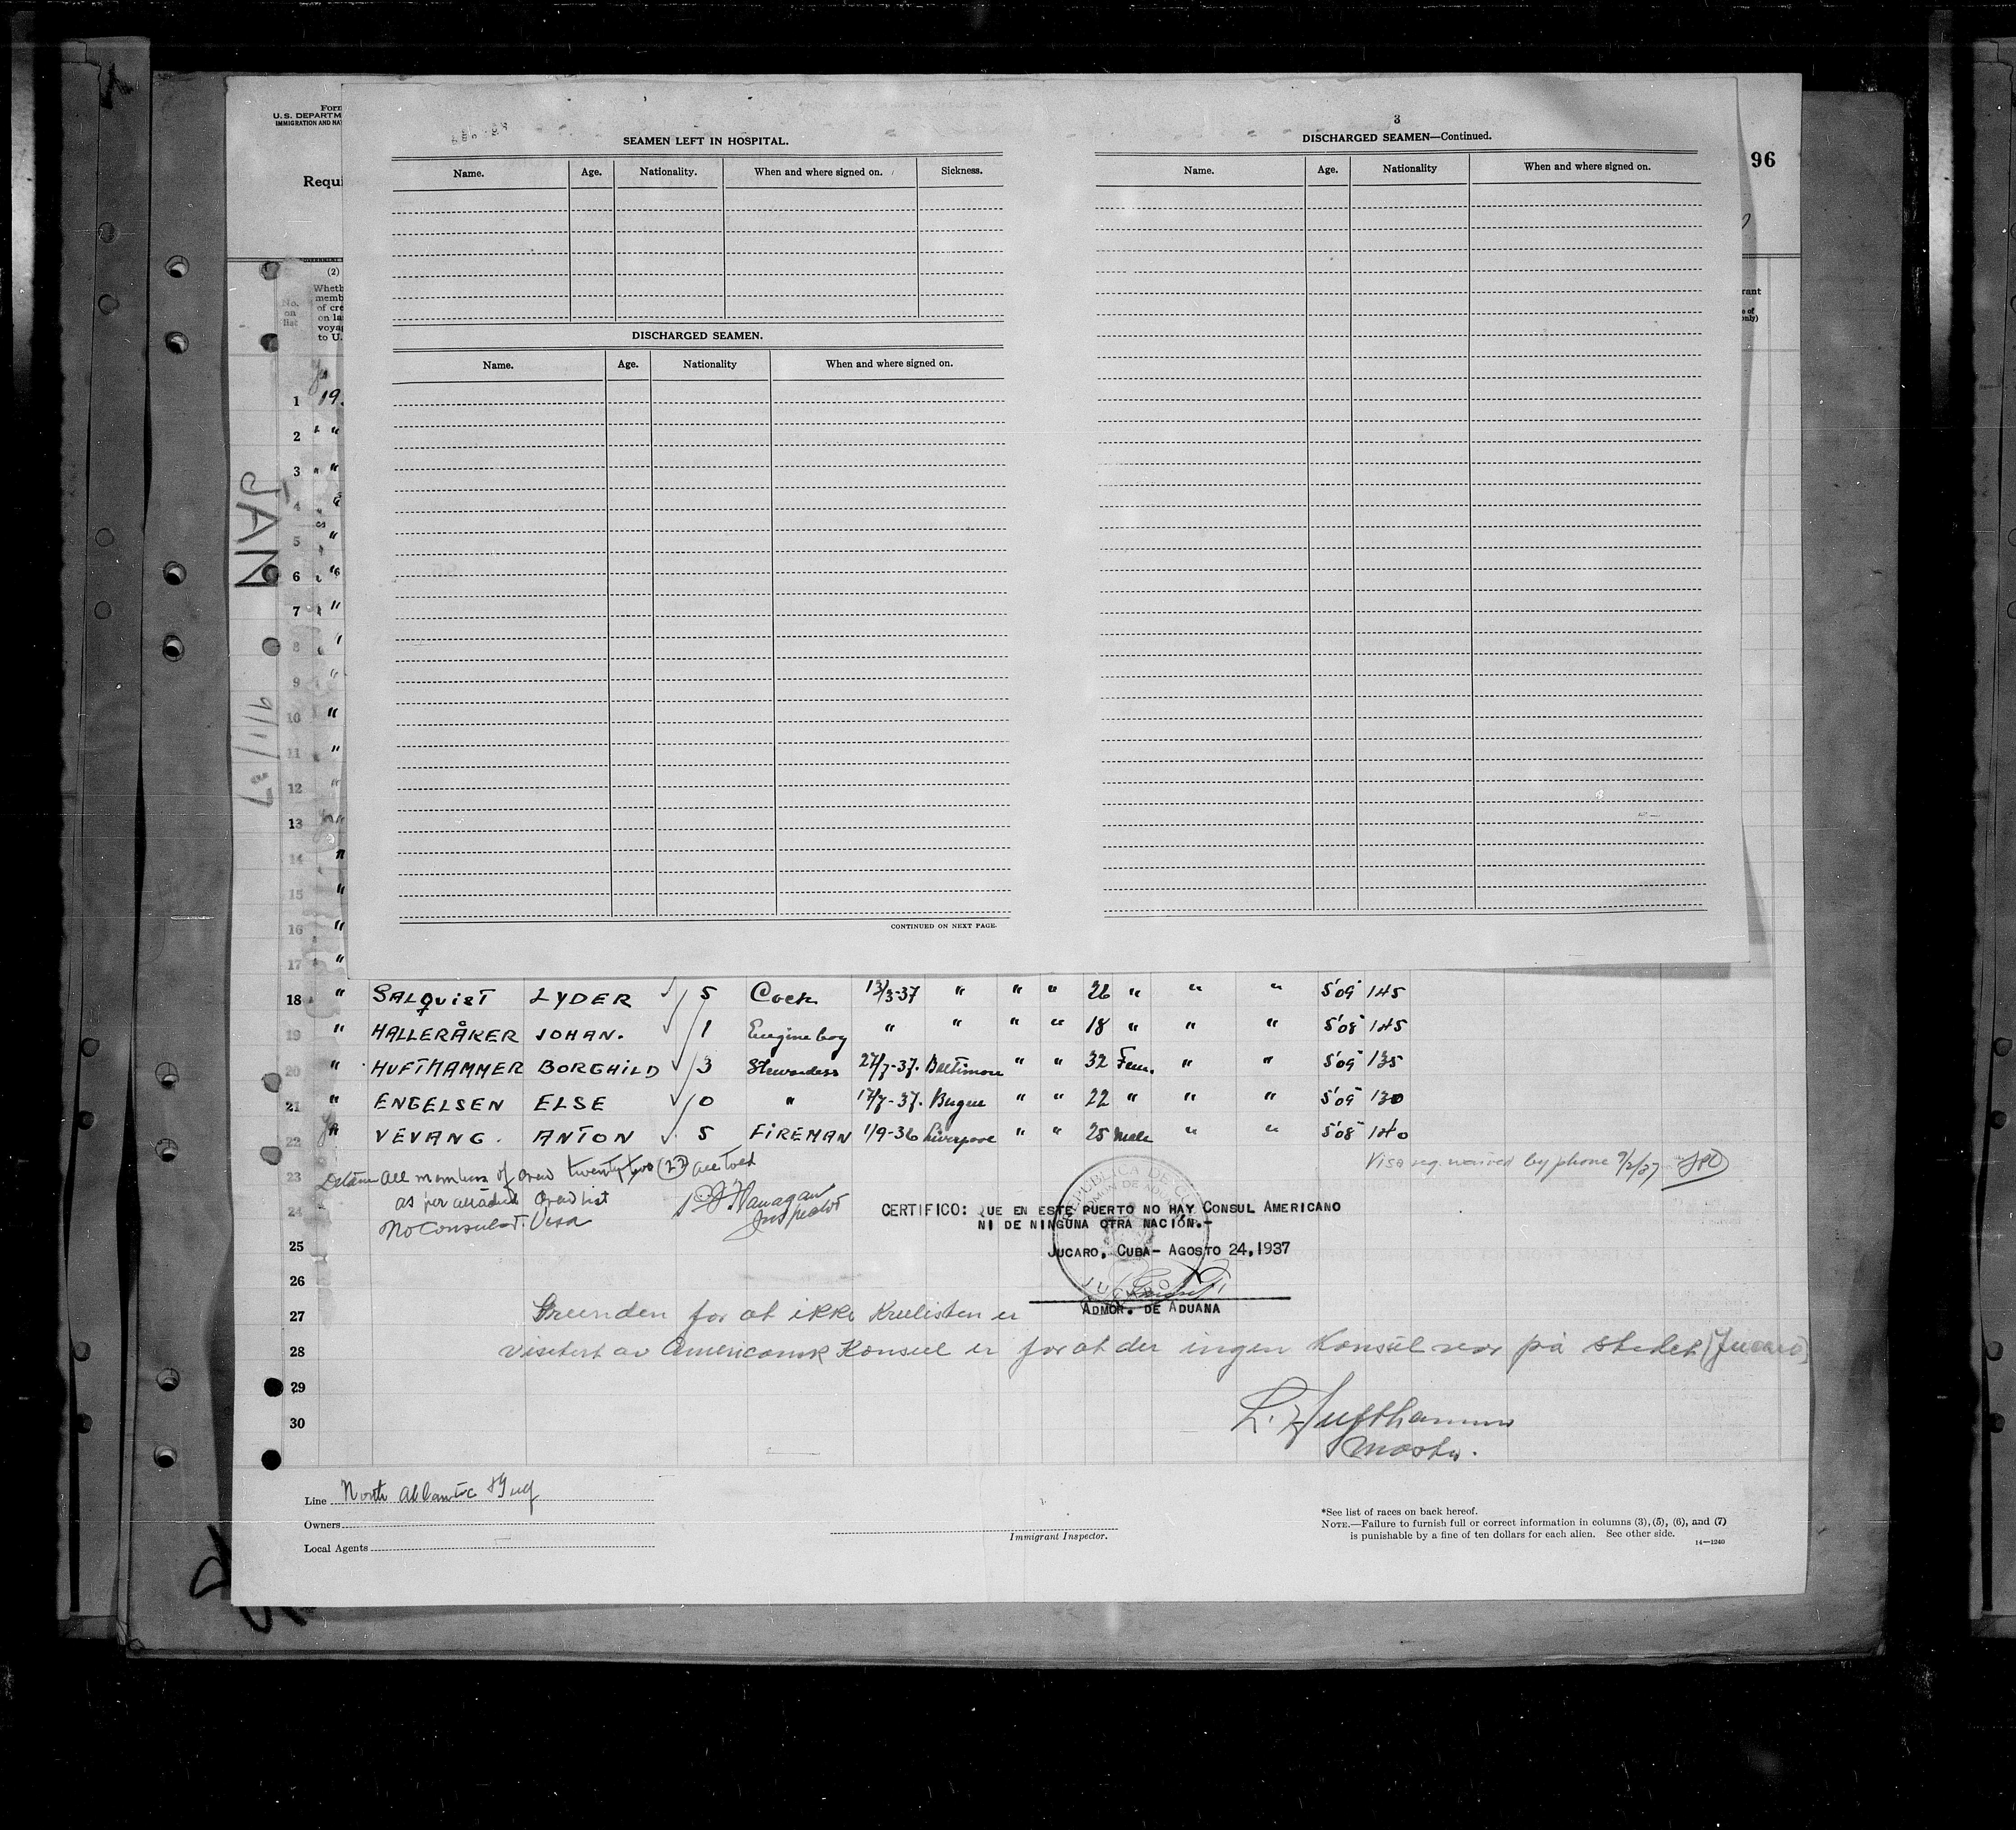 Form
U.S. DEPARTM
IMMIGRATION AND NA
Requi
96
3
SEAMEN LEFT IN HOSPITAL.
Name. Age. Nationality. When and where signed on. Sickness.
DISCHARGED SEAMEN.
Name. Age. Nationality When and where signed on.
CONTINUED ON NEXT PAGE.
DISCHARGED SEAMEN—Continued.
Name. Age. Nationality When and where signed on.
(2)
No. on list
Wheth
memb
of cre
on la
voya
to U.
JAN
1 19
2 " "
3 " "
4 "
5 "
6 "
7 "
8
9 "
10 "
11 "
12 "
13 "
14 "
15 "
16 "
17 "
18 " SALQUIST LYDER ✓ 5 Cock 13/3-37 " " " 26 " " " 5'09" 145
19 " HALLERÅKER JOHAN. ✓ 1 Engine boy " " " " 18 " " " 5'08" 145
20 " HUFTHAMMER BORGHILD ✓ 3 Stewardess 27/7-37. Baltimore " " 32 Fem. " " 5'09" 135
21 " ENGELSEN ELSE ✓ 0 " 17/7-37. " " 22 " " " 5'09" 130
22 " VEVANG. ANTON ✓ 5 FIREMAN 1/9-36 Liverpool " " 25 Male " " 5'08" 140
23 Detain all members of crew twenty two (22) all told
as per attached crew list
24 No Consulat. Visa
P J Flanagan
Inspector
Visa req. waived by phone 9/2/37
REPUBLICA DE CUBA
JUCARO
CERTIFICO: QUE EN ESTE PUERTO NO HAY CONSUL AMERICANO
NI DE NINGUNA OTRA NACIÓN.-
JUCARO, CUBA- AGOSTO 24,1937
ADMOR. DE ADUANA
25
26
27 Grunden for at ikke Krulisten er
28 visitert av Americansk Konsul er for at der ingen Konsul var på stedet (Jucaro)
29
30
L. Hufthammer
Master.
Line North Atlantic & Gulf
Owners
Local Agents
Immigrant Inspector.
*See list of races on back hereof.
NOTE.—Failure to furnish full or correct information in columns (3), (5), (6), and (7)
is punishable by a fine of ten dollars for each alien. See other side.
14—1240